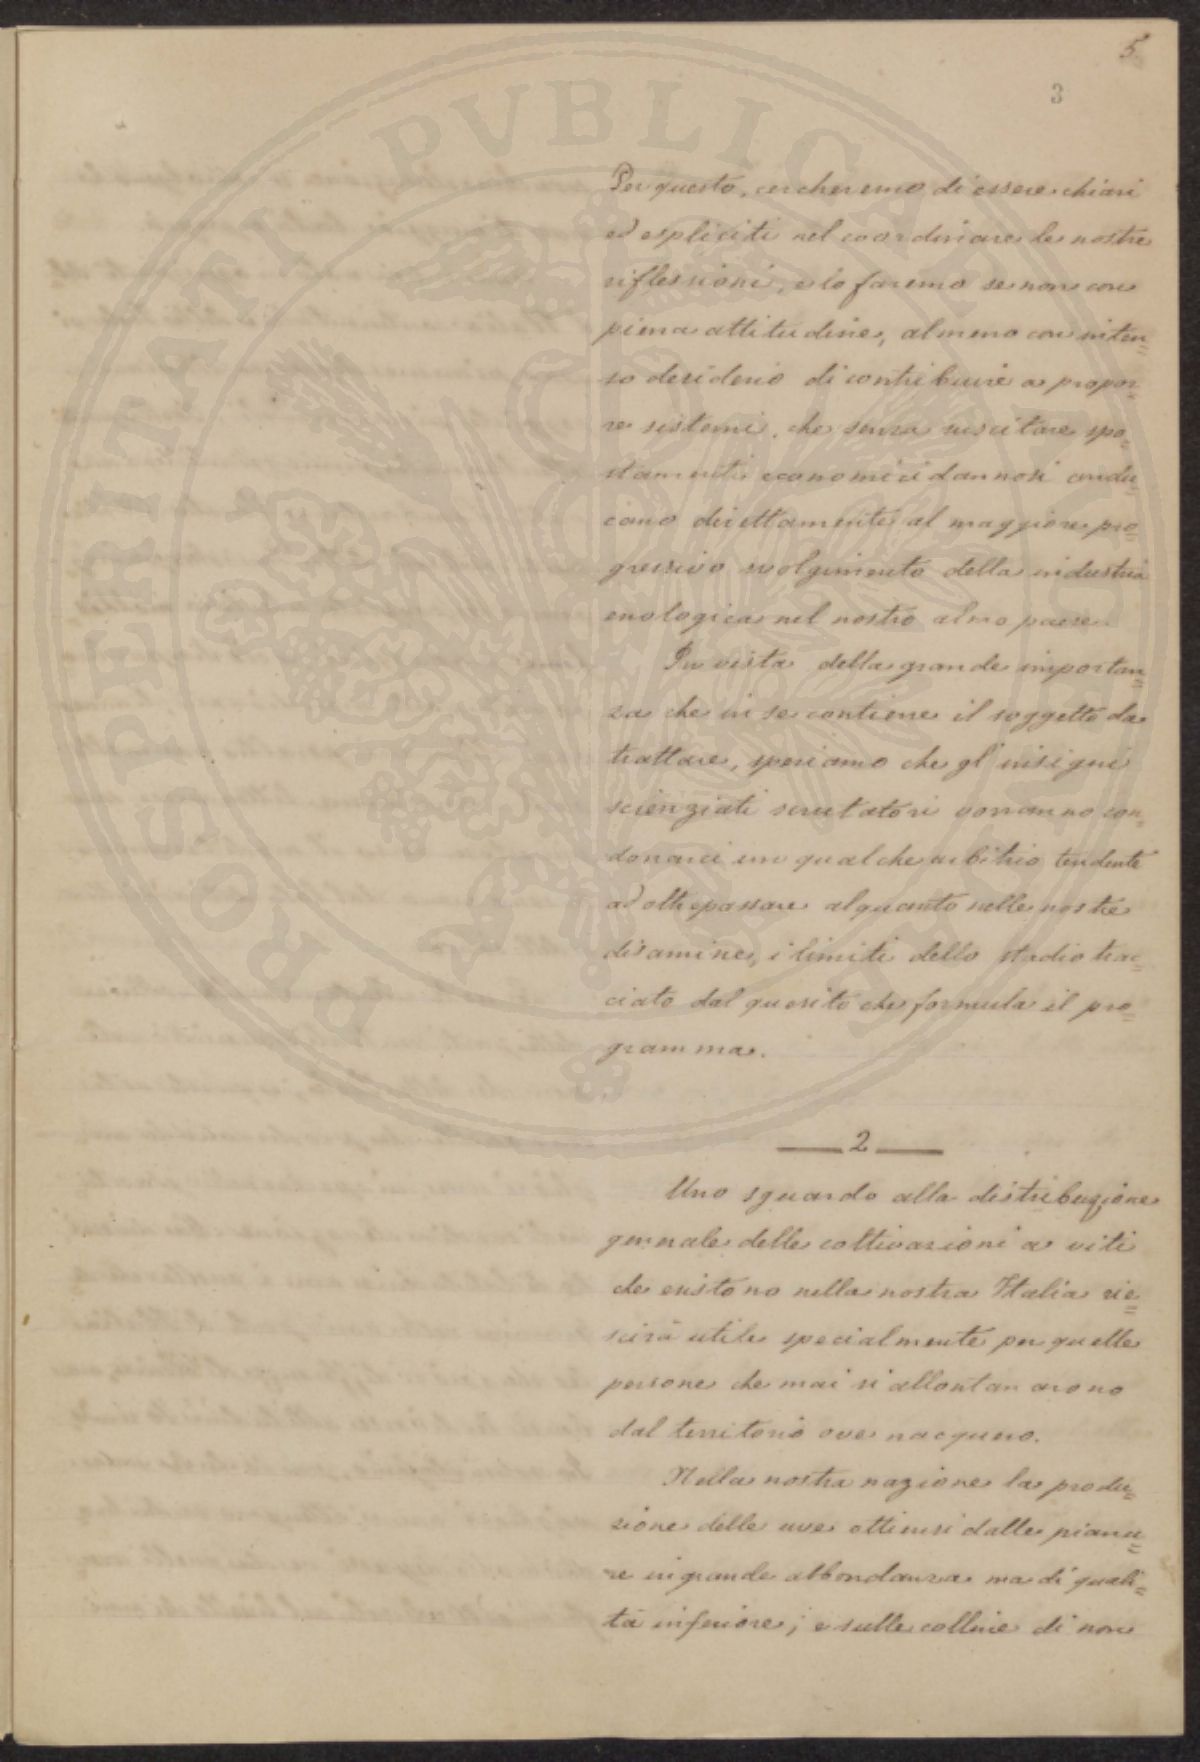 5
3
PROSPERITATI PVBLICAE AVGENDAE
Per questo, cercheremo di essere chiari
ed espliciti nel coordinare le nostre
riflessioni, e lo faremo se non con
piena attitudine, almeno con inten=
so desiderio di contribuire a propor=
re sistemi, che senza suscitare spo=
stamenti economici dannosi condu=
cano direttamente al maggiore pro=
gressivo svolgimento della industria
enologica nel nostro almo paese.
In vista della grande importan=
za che in se contiene il soggetto da
trattare, speriamo che gl'insigni
scienziati scrutatori vorranno con=
donarci un qualche arbitrio tendente
ad oltrepassare alquanto nelle nostre
disamine, i limiti dello stadio trac=
ciato dal quesito che formula il pro=
gramma.
2
Uno sguardo alla distribuzione
generale delle coltivazioni a viti
che esistono nella nostra Italia rie=
scirà utile specialmente per quelle
persone che mai si allontanarono
dal territorio ove nacquero.
Nella nostra nazione la produ=
zione delle uve ottiensi dalle pianu=
re in grande abbondanza ma di quali=
tà inferiore; e sulle colline di non